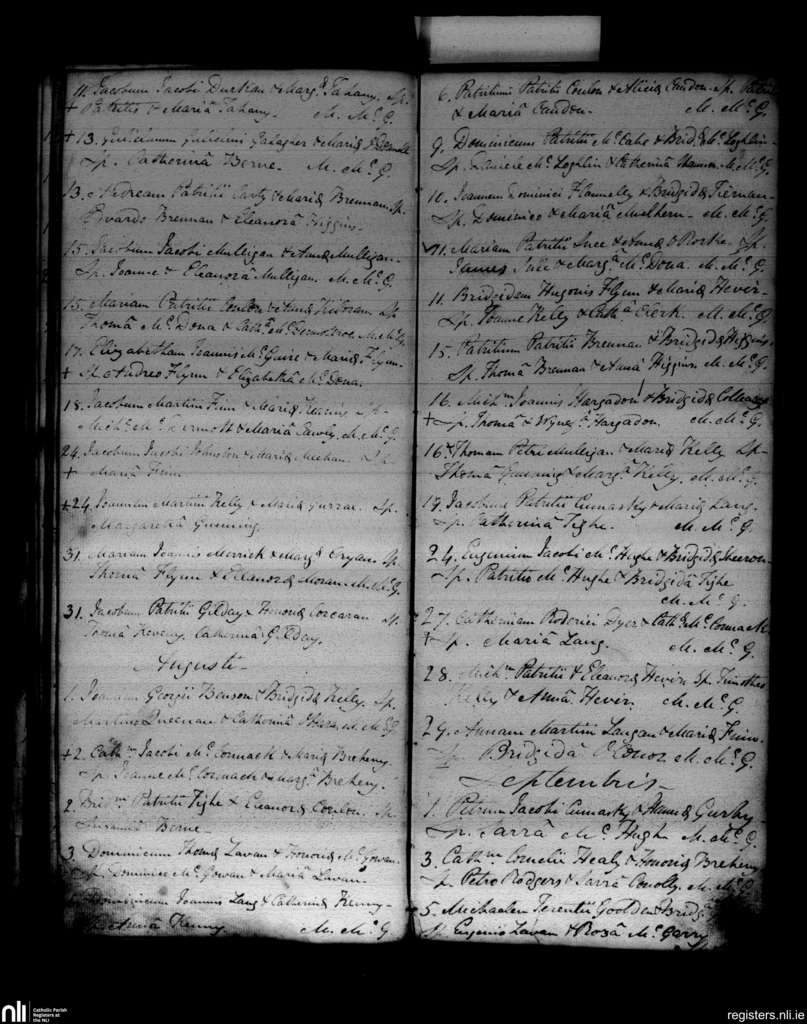 11. Jacobum Jacobi Durkan & Marg.ª Tahany. Sp.
+ Patritio & Mariâ Tahany. M. Mc. G.
+ 13. Gulielmum Gulielmi Galagher & Mariâ
Sp. Catherinâ Berne. M. Mc. G.
13. Andream Patritii Carty & Mariâ Brennan. Sp.
Edvardo Brennan & Eleanorâ Higgins.
15. Jacobum Jacobi Mulligan & Annâ Mulligan.
Sp. Joanne & Eleanorâ Mulligan. M. Mc. G.
15. Mariam Patritii Conlon & Annâ Sp.
Thomâ Mc. Dona & Cath.ª Mc. M. Mc. G.
17. Elizabetham Joannis Mc. Guire & Mariâ Flynn.
+ Sp. Andreo Flynn & Elizabethâ Mc. Dona.
18. Jacobum Martini Finn & Mariâ Sp.
Mich.º & Mariâ M. Mc. G.
24. Jacobum Jacobi Johnston & Mariâ Mechan. Sp.
+ Mariâ Finn
+ 24. Joannem Martini Kelly & Mariâ Sp.
Margaretâ Gunning.
31. Mariam Joannis Merrick & Marg.ª Cryan. Sp.
Thomâ Flynn & Eleanorâ Moran. M. Mc. G.
31. Jacobum Patritii Gilday & Honorâ Corcoran Sp.
Thomâ Keveny. Catherinâ Gilday.
Augusti
1. Joannem Georgii Benson & Bridgidâ Kelly. Sp.
Martino & Catherinâ M. Mc. G.
+ 2. Cath.m Jacobi Mc. Cormack & Mariâ Breheny.
Sp. Joanne Mc. Cormack & Marg.ª Breheny.
2. Brid.m Patritii Tighe & Eleanorâ Conlon. Sp.
Berne
3. Dominicum Thomâ Lavan & Honorâ Mc. Gowan.
Sp. Dominico Mc. Gowan & Mariâ Lavan.
Dominicum Joannis Lang & Catherinâ Kenny.
Sp. Annâ Kenny. M. Mc. G.
6. Patritium Patritii Conlon & Aliciâ Candon. Sp.
& Mariâ Candon. M. Mc. G.
9. Dominicum Patritii Mc. Cabe & Brid.ª Mc. Loghlin
Sp. Daniele Mc. Loghlin & Catherinâ Shannon. M. Mc. G.
10. Joannem Dominici Flannelly & Bridgidâ Tiernan
Sp. Dominico & Mariâ Mulhern. M. Mc. G.
11. Mariam Patritii Suce & Annâ O Rorke. Sp.
James Suce & Marg.ª Mc. Dona. M. Mc. G.
11. Bridgidam Hugonis Flynn & Mariâ Hevir
Sp. Joanne Kelly & Cath.ª Clerk. M. Mc. G.
15. Patritium Patritii Brennan & Bridgidâ Higgins
Sp. Thomâ Brennan & Annâ Higgins. M. Mc. G.
16. Mich.m Joannis Hargadon & Bridgidâ
+ Sp. Thomâ & Hargadon. M. Mc. G.
16. Thomam Petri Mulligan & Mariâ Kelly Sp
Thomâ Gunning & Marg.ª Kelly. M. Mc. G.
17. Jacobum Patritii Cumasky & Mariâ Lang.
Sp. Catherinâ Tighe. M. Mc. G.
24. Eugenium Jacobi Mc. Hughe & Bridgidâ Heeron.
Sp. Patritio Mc. Hughe & Bridgidâ Tighe
M. Mc. G.
27. Catherinam Roderici Dyer & Cath.ª Mc. Cormack
+ Sp. Mariâ Lang. M. Mc. G.
28. Mich.m Patritii & Eleanorâ Hevir. Sp. Timotheo
Kelly & Annâ Hevir. M. Mc. G.
29. Annam Martini Langan & Mariâ Finn.
Sp. Bridgidâ O Conor M. Mc. G.
Septembris
1. Petrum Jacobi Cumasky & Annâ
Sp. Sarrâ Mc. Hugh M. Mc. G.
3. Cath.m Cornelii Healy & Honorâ Breheny
Sp. Petro Rodgers & Sarrâ Conolly. M. Mc. G.
5. Michaelem Terentii Goolden & Bridg.ª
Sp. Eugenio Lavan & Rosâ Mc. Garry
nli
Catholic Parish
Registers at
the NLI
registers.nli.ie